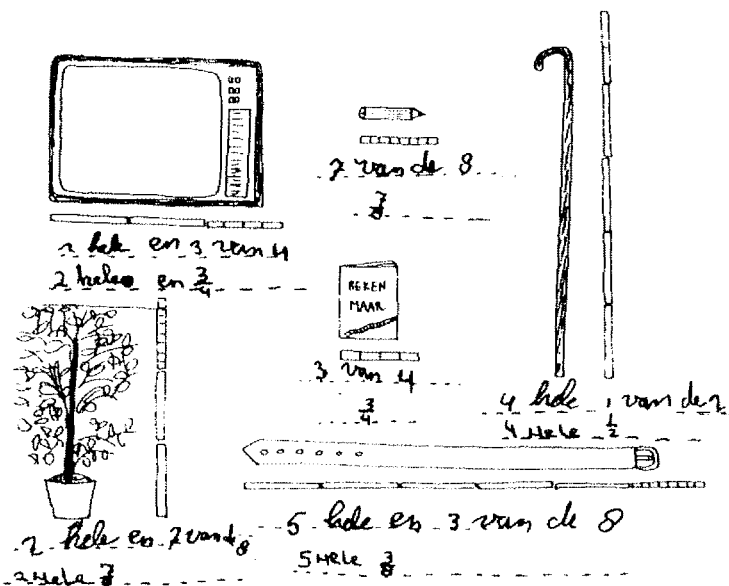 7 van de 8
7/8
2 hele en 3 van 4
2 hele en 3/4
REKEN
MAAR
3 van 4
3/4
4 hele 1 van de 2
4 Hele 1/2
2 hele en 7 van de 8
2 Hele 7/8
5 hele en 3 van de 8
5 Hele 3/8